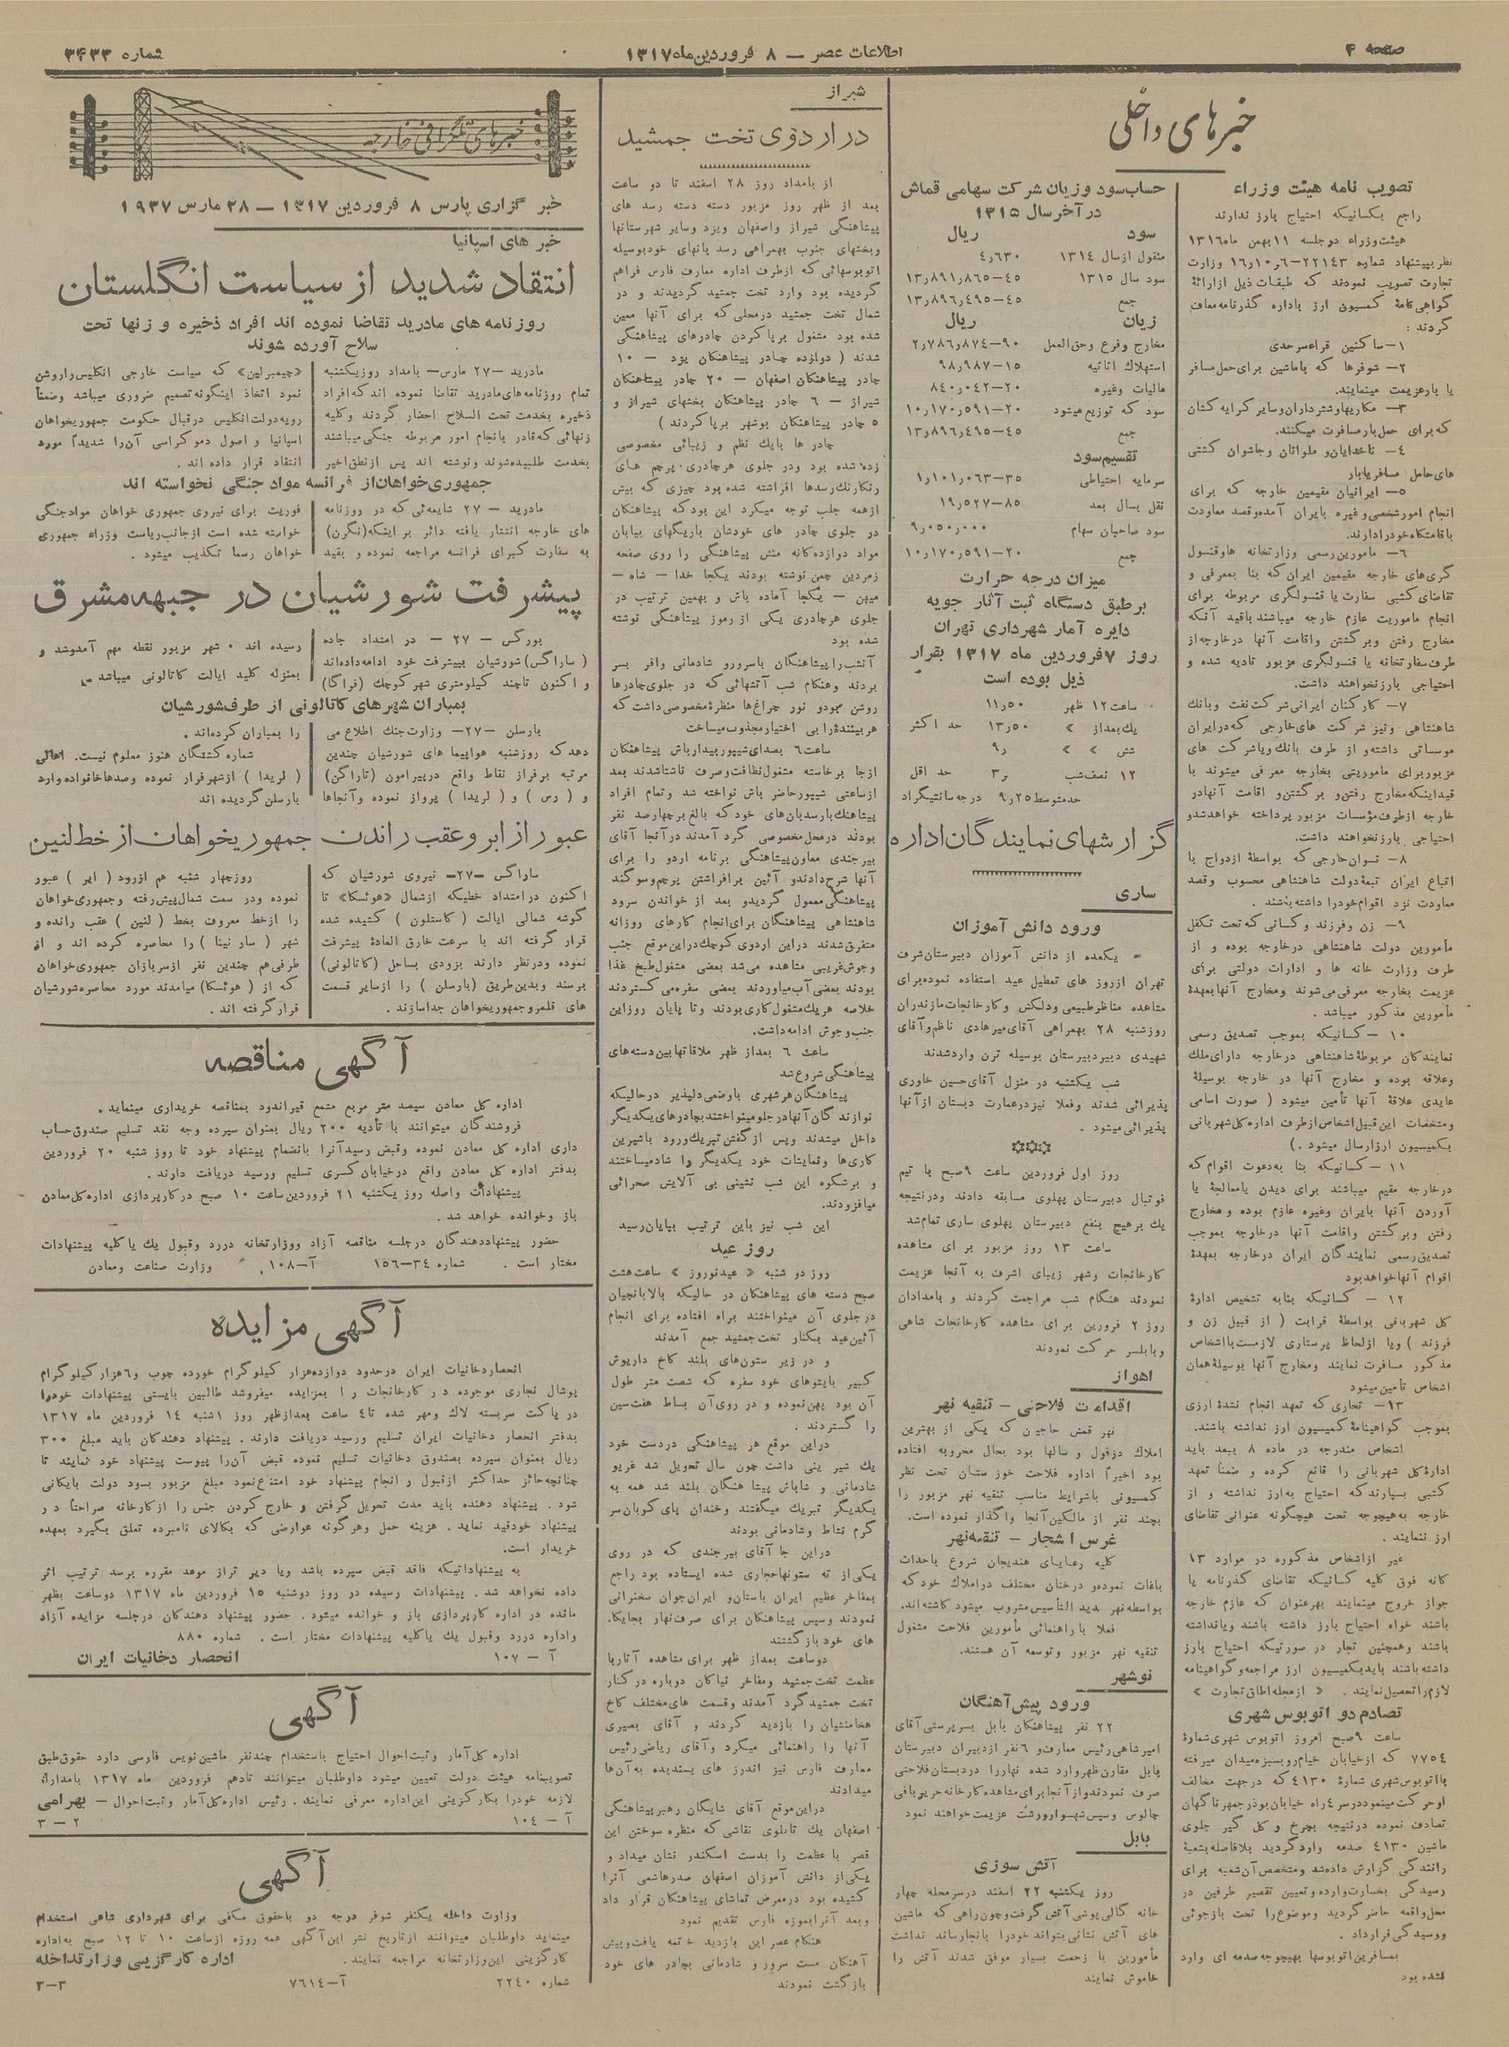 صفحه ۴
اطلاعات عصر — ۸ فروردین ماه ۱۳۱۷
شماره ۳۴۳۳
خبرهای داخلی
تصویب نامه هیئت وزراء
راجع بکسانیکه احتیاج بارز ندارند
هیئت وزراء در جلسه ۱۱ بهمن ماه ۱۳۱۶
نظر به پیشنهاد شماره ۲۲۱۴۳–۱۶٫۱۰٫۶ وزارت
تجارت تصویب نمودند که طبقات ذیل از ارائهٔ
گواهی نامهٔ کمسیون ارز باداره گذرنامه معاف
گردند :
۱— ساکنین قراء سرحدی
۲— شوفرها که باماشین برای حمل مسافر
یا بار عزیمت مینمایند.
۳— مکاریها و شترداران وسایر کرایه کشان
که برای حمل بار مسافرت میکنند.
۴— ناخدایان و ملوانان و جاشوان کشتی
های حامل مسافر یا بار
۵— ایرانیان مقیمین خارجه که برای
انجام امور شخصی و غیره بایران آمده و قصد معاودت
باقامتگاه خود را دارند.
۶— مامورین رسمی وزارتخانه ها و قنسول
گری‌های خارجه مقیمین ایران که بنا بمعرفی و
تقاضای کتبی سفارت یا قنسولگری مربوطه برای
انجام ماموریت عازم خارجه میباشند باقید آنکه
مخارج رفتن و برگشتن و اقامت آنها در خارجه از
طرف سفارتخانه یا قنسولگری مزبور تادیه شده و
احتیاجی بارز نخواهند داشت.
۷— کارکنان ایرانی شرکت نفت و بانک
شاهنشاهی و نیز شرکت های خارجی که در ایران
موسساتی داشته و از طرف بانک و یا شرکت های
مزبور برای ماموریتی بخارجه معرفی میشوند با
قید اینکه مخارج رفتن و برگشتن و اقامت آنها در
خارجه از طرف مؤسسات مزبور پرداخته خواهد شد و
احتیاجی بارز نخواهند داشت.
۸— نسوان خارجی که بواسطهٔ ازدواج با
اتباع ایران تبعهٔ دولت شاهنشاهی محسوب و قصد
معاودت نزد اقوام خود را داشته باشند .
۹— زن و فرزند و کسانی که تحت تکفل
مأمورین دولت شاهنشاهی در خارجه بوده و از
طرف وزارت خانه ها و ادارات دولتی برای
عزیمت بخارجه معرفی می‌شوند و مخارج آنها بعهدهٔ
مأمورین مذکور میباشد .
۱۰— کسانیکه بموجب تصدیق رسمی
نمایندگان مربوطهٔ شاهنشاهی در خارجه دارای ملک
وعلاقه بوده و مخارج آنها در خارجه بوسیلهٔ
عایدی علاقهٔ آنها تأمین میشود ( صورت اسامی
ومشخصات این قبیل اشخاص از طرف اداره کل شهربانی
بکمیسیون ارز ارسال میشود . )
۱۱— کسانیکه بنا به دعوت اقوام که
در خارجه مقیم میباشند برای دیدن یا معالجهٔ یا
آوردن آنها بایران وغیره عازم بوده و مخارج
رفتن و برگشتن و اقامت آنها در خارجه بموجب
تصدیق رسمی نمایندگان ایران در خارجه بعهدهٔ
اقوام آنها خواهد بود
۱۲— کسانیکه بنابه تشخیص ادارهٔ
کل شهربانی بواسطهٔ قرابت ( از قبیل زن و
فرزند ) ویا از لحاظ پرستاری لازمست با اشخاص
مذکور مسافرت نمایند و مخارج آنها بوسیلهٔ همان
اشخاص تأمین میشود
۱۳— تجاری که تعهد انجام نشدهٔ ارزی
بموجب گواهینامهٔ کمسیون ارز نداشته باشند.
اشخاص مندرجه در ماده ۸ ببعد باید
ادارهٔ کل شهربانی را قانع کرده و ضمناً تعهد
کتبی بسپارند که احتیاج به ارز نداشته و از
خارجه به هیچوجه تحت هیچگونه عنوانی تقاضای
ارز ننمایند.
غیر از اشخاص مذکوره در موارد ۱۳
گانه فوق کلیه کسانیکه تقاضای گذرنامه یا
جواز خروج مینمایند بهر عنوان که عازم خارجه
باشند خواه احتیاج بارز داشته باشند و یا نداشته
باشند و همچنین تجار در صورتیکه احتیاج بارز
داشته باشند باید بکمیسیون ارز مراجعه و گواهینامه
لازم را تحصیل نمایند . « از مجله اطاق تجارت »
تصادم دو اتوبوس شهری
ساعت ۹ صبح امروز اتوبوس شهری شمارهٔ
۷۷۵۴ که از خیابان خیام رو بسبزه میدان میرفته
با اتوبوس شهری شمارهٔ ۴۱۳۰ که در جهت مخالف
او حرکت مینمود در سر ۴ راه خیابان بوذرجمهر ناگهان
تصادف نموده در نتیجه بچرخ و گل گیر جلوی
ماشین ۴۱۳۰ صدمه وارد گردید بلافاصله بشعبهٔ
رانندگی گزارش داده شد و متخصص آن شعبه برای
رسیدگی بخسارت وارده و تعیین تقصیر طرفین در
محل واقعه حاضر گردید و موضوع را تحت بازجوئی
ورسیدگی قرار داد .
بمسافرین اتوبوسها بهیچوجه صدمه ای وارد
نشده بود
حساب سود و زیان شرکت سهامی قماش
در آخر سال ۱۳۱۵
سود ریال
منقول از سال ۱۳۱۴ ۴٫۶۳۰
سود سال ۱۳۱۵ ۱۳٫۸۹۱٫۸۶۵–۴۵
جمع ۱۳٫۸۹۶٫۴۹۵–۴۵
زیان ریال
مخارج و فرع و حق العمل ۲٫۷۸۶٫۸۷۴–۹۰
استهلاک اثاثیه ۹۸٫۹۸۷–۱۵
مالیات وغیره ۸۴۰٫۰۴۲–۲۰
سود که توزیع میشود ۱۰٫۱۷۰٫۵۹۱–۲۰
جمع ۱۳٫۸۹۶٫۴۹۵–۴۵
تقسیم سود
سرمایه احتیاطی ۱٫۱۰۱٫۰۶۳–۳۵
نقل بسال بعد ۱۹٫۵۲۷–۸۵
سود صاحبان سهام ۹٫۰۵۰٫۰۰۰
جمع ۱۰٫۱۷۰٫۵۹۱–۲۰
میزان درجه حرارت
بر طبق دستگاه ثبت آثار جویه
دایره آمار شهرداری تهران
روز ۷ فروردین ماه ۱۳۱۷ بقرار
ذیل بوده است
ساعت ۱۲ ظهر ۱۱٫۵۰
یک بعداز » ۱۳٫۵۰ حد اکثر
شش » » ۹٫
۱۲ نصف شب ۳٫ حد اقل
حد متوسط ۹٫۲۵ درجه سانتیگراد
گزارشهای نمایندگان اداره
ساری
ورود دانش آموزان
یکعده از دانش آموزان دبیرستان شرف
تهران از روز های تعطیل عید استفاده نموده برای
مشاهده مناظر طبیعی و دلکش و کارخانجات مازندران
روز شنبه ۲۸ بهمراهی آقای میرهادی ناظم و آقای
شهیدی دبیر دبیرستان بوسیله ترن وارد شدند
شب یکشنبه در منزل آقای حسین خاوری
پذیرائی شدند و فعلا نیز در عمارت دبستان از آنها
پذیرائی میشود .
***
روز اول فروردین ساعت ۹ صبح با تیم
فوتبال دبیرستان پهلوی مسابقه دادند و در نتیجه
یک بر هیچ بنفع دبیرستان پهلوی ساری تمام شد
ساعت ۱۳ روز مزبور برای مشاهده
کارخانجات و شهر زیبای اشرف به آنجا عزیمت
نمودند هنگام شب مراجعت کردند و بامدادان
روز ۲ فرورین برای مشاهده کارخانجات شاهی
وبابلسر حرکت نمودند
اهواز
اقدامات فلاحتی — تنقیه نهر
نهر قمش حاجیان که یکی از بهترین
املاک دزفول و سالها بود بحال مخروبه افتاده
بود اخیراً اداره فلاحت خوزستان تحت نظر
کمسیونی باشرایط مناسب تنقیه نهر مزبور را
بچند نفر از مالکین آنجا واگذار نموده است.
غرس اشجار — تنقیه نهر
کلیه رعایای هندیجان شروع باحداث
باغات نموده و درختان مختلف در املاک خود که
بواسطه نهر جدید التأسیس مشروب میشود کاشته اند.
فعلا با راهنمائی مأمورین فلاحت مشغول
تنقیه نهر مزبور و توسعه آن هستند.
نوشهر
ورود پیش آهنگان
۲۲ نفر پیشاهنگان بابل بسرپرستی آقای
امیرشاهی رئیس معارف و ۶ نفر از دبیران دبیرستان
بابل مقارن ظهر وارد شده نهار را در دبستان فلاحتی
صرف نمودند و از آنجا برای مشاهده کارخانه حریربافی
چالوس و سپس شهسوار و رشت عزیمت خواهند نمود
بابل
آتش سوزی
روز یکشنبه ۲۲ اسفند در سر محله چهار
خانه گالی پوشی آتش گرفت و چون راهی که ماشین
های آتش نشانی بتواند خود را بانجا رساند نداشت
مأمورین با زحمت بسیار موفق شدند آتش را
خاموش نمایند
شیراز
در اردوی تخت جمشید
از بامداد روز ۲۸ اسفند تا دو ساعت
بعد از ظهر روز مزبور دسته دسته رسد های
پیشاهنگی شیراز و اصفهان و یزد و سایر شهرستانها
وبخشهای جنوب بهمراهی رسد بانهای خود بوسیله
اتوبوسهائی که از طرف اداره معارف فارس فراهم
گردیده بود وارد تخت جمشید گردیدند و در
شمال تخت جمشید در محلی که برای آنها معین
شده بود مشغول برپا کردن چادرهای پیشاهنگی
شدند ( دوازده چادر پیشاهنگان یزد — ۱۰
چادر پیشاهنگان اصفهان — ۲۰ چادر پیشاهنگان
شیراز — ۶ چادر پیشاهنگان بخشهای شیراز و
۵ چادر پیشاهنگان بوشهر برپا کردند )
چادر ها بایک نظم و زیبائی مخصوصی
زده شده بود و در جلوی هر چادری پرچم های
رنگارنگ رسدها افراشته شده بود چیزی که بیش
از همه جلب توجه میکرد این بود که پیشاهنگان
در جلوی چادر های خودشان باریگهای بیابان
مواد دوازده گانه منش پیشاهنگی را روی صفحه
زمردین چمن نوشته بودند یکجا خدا — شاه —
میهن — یکجا آماده باش و بهمین ترتیب در
جلوی هر چادری یکی از رموز پیشاهنگی نوشته
شده بود
آنشب را پیشاهنگان باسرور و شادمانی وافر بسر
بردند و هنگام شب آتشهائی که در جلوی چادرها
روشن نمودند و نور چراغها منظرهٔ مخصوصی داشت که
هر بیننده را بی اختیار مجذوب میساخت
ساعت ۶ بصدای شیپور بیدار باش پیشاهنگان
از جا برخاسته مشغول نظافت و صرف ناشتا شدند بعد
از ساعتی شیپور حاضر باش نواخته شد و تمام افراد
پیشاهنگ با رسدبان های خود که بالغ بر چهارصد نفر
بودند در محل مخصوصی گرد آمدند در آنجا آقای
بیرجندی معاون پیشاهنگی برنامه اردو را برای
آنها شرح دادند و آئین برافراشتن پرچم و سوگند
پیشاهنگی معمول گردید و بعد از خواندن سرود
شاهنشاهی پیشاهنگان برای انجام کارهای روزانه
متفرق شدند در این اردوی کوچک در این موقع جنب
وجوش غریبی مشاهده می‌شد بعضی مشغول طبخ غذا
بودند بعضی آب میاوردند بعضی سفره می گستردند
خلاصه هر یک مشغول کاری بودند و تا پایان روز این
جنب و جوش ادامه داشت.
ساعت ۶ بعداز ظهر ملاقاتها بین دسته های
پیشاهنگی شروع شد
پیشاهنگان هر شهری باوضعی دلپذیر در حالیکه
نوازندگان آنها در جلو مینواختند بچادرهای یکدیگر
داخل میشدند و پس از گفتن تبریک ورود باشیرین
کاری‌ها و نمایشات خود یکدیگر را شاد میساختند
و بر شکوه این شب نشینی بی آلایش صحرائی
میافزودند.
این شب نیز باین ترتیب بپایان رسید
روز عید
روز دو شنبه « عید نوروز » ساعت هشت
صبح دسته های پیشاهنگان در حالیکه بالابانچیان
در جلوی آن مینواختند براه افتاده برای انجام
آئین عید بکنار تخت جمشید جمع آمدند
و در زیر ستون‌های بلند کاخ داریوش
کبیر باپتوهای خود سفره که شصت متر طول
آن بود پهن نموده و در روی آن بساط هفت سین
را گستردند .
در این موقع هر پیشاهنگی در دست خود
یک شیرینی داشت چون سال تحویل شد غریو
شادمانی و شاباش پیشاهنگان بلند شد همه به
یکدیگر تبریک میگفتند و خندان پای کوبان سر
گرم نشاط و شادمانی بودند
در این جا آقای بیرجندی که در روی
یکی از ته ستونها حجاری شده ایستاده بود راجع
بمفاخر عظیم ایران باستان و ایران جوان سخنرانی
نمودند و سپس پیشاهنگان برای صرف نهار بجایگاه
های خود باز گشتند
دو ساعت بعداز ظهر برای مشاهده آثار با
عظمت تخت جمشید و مفاخر نیاکان دوباره در کنار
تخت جمشید گرد آمدند و قسمت های مختلف کاخ
هخامنشیان را بازدید کردند و آقای بصیری
آنها را راهنمائی میکرد و آقای ریاضی رئیس
معارف فارس نیز اندرز های پسندیده به آن‌ها
میدادند
در این موقع آقای شایگان رهبر پیشاهنگی
اصفهان یک تابلوی نقاشی که منظره سوختن این
قصر با عظمت را بدست اسکندر نشان میداد و
یکی از دانش آموزان اصفهان صدرهاشمی آنرا
کشیده بود در معرض تماشای پیشاهنگان قرار داد
و بعد آنرا بموزه فارس تقدیم نمود
هنگام عصر این بازدید خاتمه یافت و پیش
آهنگان مست سرور و شادمانی بچادر های خود
بازگشت نمودند
خبرهای تلگرافی خارجه
خبر گزاری پارس ۸ فروردین ۱۳۱۷ — ۲۸ مارس ۱۹۳۷
خبر های اسپانیا
انتقاد شدید از سیاست انگلستان
روزنامه های مادرید تقاضا نموده اند افراد ذخیره و زنها تحت
سلاح آورده شوند
مادرید —۲۷ مارس— بامداد روز یکشنبه
تمام روزنامه‌های مادرید تقاضا نموده اند که افراد
ذخیره بخدمت تحت السلاح احضار گردند و کلیه
زنهائی که قادر بانجام امور مربوطه جنگی میباشند
بخدمت طلبیده شوند و نوشته اند پس از نطق اخیر
«چیمبرلین» که سیاست خارجی انگلیس را روشن
نمود اتخاذ اینگونه تصمیم ضروری میباشد و ضمناً
رویه دولت انگلیس در قبال حکومت جمهوریخواهان
اسپانیا و اصول دموکراسی آن را شدیداً مورد
انتقاد قرار داده اند .
جمهوری خواهان از فرانسه مواد جنگی نخواسته اند
مادرید — ۲۷ شایعه‌ئی که در روزنامه
های خارجه انتشار یافته دائر بر اینکه (نگرن)
به سفارت کبرای فرانسه مراجعه نموده و بقید
فوریت برای نیروی جمهوری خواهان مواد جنگی
خواسته شده است از جانب ریاست وزراء جمهوری
خواهان رسما تکذیب میشود .
پیشرفت شورشیان در جبهه مشرق
بورگس — ۲۷ — در امتداد جاده
( ساراگس) شورشیان بپیشرفت خود ادامه داده اند
و اکنون تا چند کیلومتری شهر کوچک (فراگا)
رسیده اند . شهر مزبور نقطه مهم آمدوشد و
بمنزله کلید ایالت کاتالونی میباشد .
بمباران شهرهای کاتالونی از طرف شورشیان
بارسلن —۲۷— وزارت جنگ اطلاع می
دهد که روز شنبه هواپیما های شورشیان چندین
مرتبه بر فراز نقاط واقع در پیرامون (تاراگن)
و ( رس ) و ( لریدا ) پرواز نموده و آنجاها
را بمباران کرده‌اند .
شماره کشتگان هنوز معلوم نیست. اهالی
( لریدا ) از شهر فرار نموده و صدها خانواده وارد
بارسلن گردیده اند
عبور از ابر و عقب راندن جمهوریخواهان از خط لنین
ساراگس —۲۷— نیروی شورشیان که
اکنون در امتداد خطیکه از شمال «هوئسکا» تا
گوشه شمالی ایالت (کاستلون) کشیده شده
قرار گرفته اند با سرعت خارق العادهٔ پیشرفت
نموده و در نظر دارند بزودی بساحل (کاتالونی)
برسند و بدین طریق (بارسلن ) را از سایر قسمت
های قلمرو جمهوریخواهان جدا سازند.
روز چهار شنبه هم از رود ( ایبر ) عبور
نموده و در سمت شمال پیش رفته و جمهوری خواهان
را از خط معروف بخط (لنین) عقب رانده و
شهر ( سارنینا ) را محاصره کرده اند و از
طرفی هم چندین نفر از سربازان جمهوری خواهان
که از (هوئسکا) میامدند مورد محاصره شورشیان
قرار گرفته اند .
آگهی مناقصه
اداره کل معادن سیصد متر مربع مشمع قیراندود بمناقصه خریداری مینماید .
فروشندگان میتوانند با تأدیه ۲۰۰ ریال بعنوان سپرده وجه نقد تسلیم صندوق حساب
داری اداره کل معادن نموده و قبض رسید آنرا بانضمام پیشنهاد خود تا روز شنبه ۲۰ فروردین
بدفتر اداره کل معادن واقع در خیابان کسری تسلیم و رسید دریافت دارند .
پیشنهادات واصله روز یکشنبه ۲۱ فروردین ساعت ۱۰ صبح در کارپردازی اداره کل معادن
باز و خوانده خواهد شد .
حضور پیشنهاد دهندگان در جلسه مناقصه آزاد و وزارتخانه در رد و قبول یک یا کلیه پیشنهادات
مختار است . شماره ۳۴–۱۵۶ آ–۱۰۸ وزارت صناعت و معادن
آگهی مزایده
انحصار دخانیات ایران در حدود دوازده هزار کیلوگرام خورده چوب و ۶ هزار کیلوگرام
پوشال نجاری موجوده در کارخانجات را بمزایده میفروشد طالبین بایستی پیشنهادات خود را
در پاکت سربسته لاک و مهر شده تا ۴ ساعت بعداز ظهر روز ۱ شنبه ۱۴ فروردین ماه ۱۳۱۷
بدفتر انحصار دخانیات ایران تسلیم و رسید دریافت دارند . پیشنهاد دهندگان باید مبلغ ۳۰۰
ریال بعنوان سپرده بصندوق دخانیات تسلیم نموده قبض آن را پیوست پیشنهاد خود نمایند تا
چنانچه حائز حداکثر از قبول و انجام پیشنهاد خود امتناع نمود مبلغ مزبور بسود دولت بایگانی
شود . پیشنهاد دهنده باید مدت تحویل گرفتن و خارج کردن جنس را از کارخانه صراحتاً در
پیشنهاد خود قید نماید . هزینه حمل و هر گونه عوارضی که بکالای نامبرده تعلق بگیرد بعهده
خریدار است.
به پیشنهاداتیکه فاقد قبض سپرده باشد ویا دیر تر از موعد مقرره برسد ترتیب اثر
داده نخواهد شد . پیشنهادات رسیده در روز دوشنبه ۱۵ فروردین ماه ۱۳۱۷ دو ساعت بظهر
مانده در اداره کارپردازی باز و خوانده میشود . حضور پیشنهاد دهندگان در جلسه مزایده آزاد
واداره در رد و قبول یک یا کلیه پیشنهادات مختار است . شماره ۸۸۰
آ – ۱۰۷ انحصار دخانیات ایران
آگهی
اداره کل آمار و ثبت احوال احتیاج باستخدام چند نفر ماشین نویس فارسی دارد حقوق طبق
تصویبنامه هیئت دولت تعیین میشود داوطلبان میتوانند تا دهم فروردین ماه ۱۳۱۷ بامدارک
لازمه خود را بکارگزینی این اداره معرفی نمایند. رئیس اداره کل آمار و ثبت احوال — بهرامی
آ – ۱۰۴ ۲ – ۳
آگهی
وزارت داخله یکنفر شوفر درجه دو باحقوق مکفی برای شهرداری شاهی استخدام
مینماید داوطلبان میتوانند از تاریخ نشر این آگهی همه روزه از ساعت ۱۰ تا ۱۲ صبح به اداره
کارگزینی این وزارتخانه مراجعه نمایند. اداره کارگزینی وزارت داخله
شماره ۲۲۴۰ آ–۷۶۱۴ ۳–۳